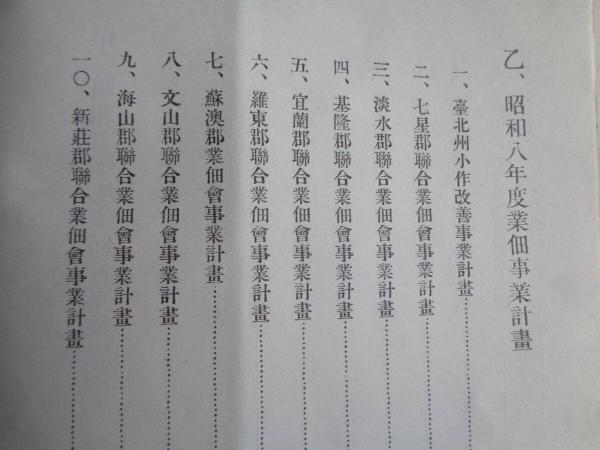 乙、昭和八年度業佃事業計畫
一、臺北州小作改善事業計畫
二、七星郡聯合業佃會事業計畫
三、淡水郡聯合業佃會事業計畫
四、基隆郡聯合業佃會事業計畫
五、宜蘭郡聯合業佃會事業計畫
六、羅東郡聯合業佃會事業計畫
七、蘇澳郡業佃會事業計畫
八、文山郡聯合業佃會事業計畫
九、海山郡聯合業佃會事業計畫
一〇、新莊郡聯合業佃會事業計畫